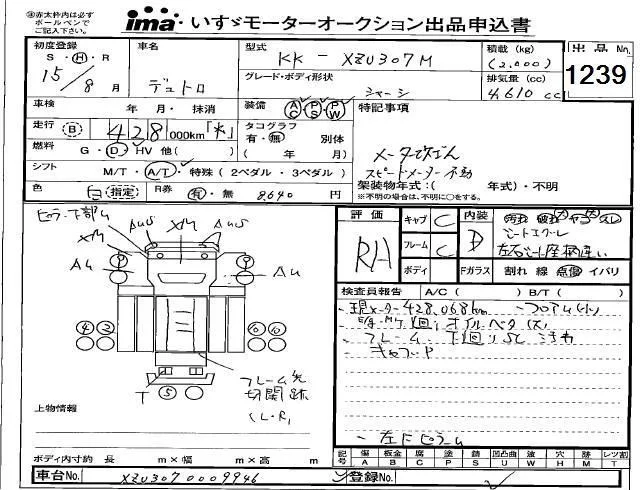 ㊟赤太枠内は必ず ボールペンで ご記入下さい
ima いすゞモーターオークション出品申込書
初度登録 車名 型式 KK - XZU307M 積載 (kg) 出品No.
S・H・R 15/8月 デュトロ グレード・ボディ形状 シャーシ (2.000) 1239
排気量 (cc) 4.610 cc
車検 年 月・抹消 装備 AC PS PW 特記事項
走行 (B) 428 000km「*」 タコグラフ 有・無 別体
燃料 G・D・HV 他( ) ( 年 月) メーター改ざん
シフト M/T・A/T・特殊 (2ペダル・3ペダル) スピードメーター不動
架装物年式:( 年式)・不明
色 白 (指定) R券 有・無 8.640 円 ※不明の場合は、不明に○をする。
ピラー下部ム 評価 キャブ C 内装
XM AUS XM AUS RA フレーム C D シートスクール
左右シート座柄違い
AU AU ボディ Fガラス 割れ 線 点傷 イバリ
検査員報告 A/C( ) B/T( )
- 現メーター428,068km
④ ② オイルベタ(大)
- フレーム 下廻りSC
- キャブ・P
T ⑤ フレーム先
切開跡
(L・R)
上物情報
- 左にピラーム
ボディ内寸約 長 m×幅 m×高 m 記号 傷 A 板金 B 腐 C 塗 P 錆 S 凹凸曲 U 波 W 穴 H 跡 M レツ割 T
車台No. XZU307 0009946 登録No.